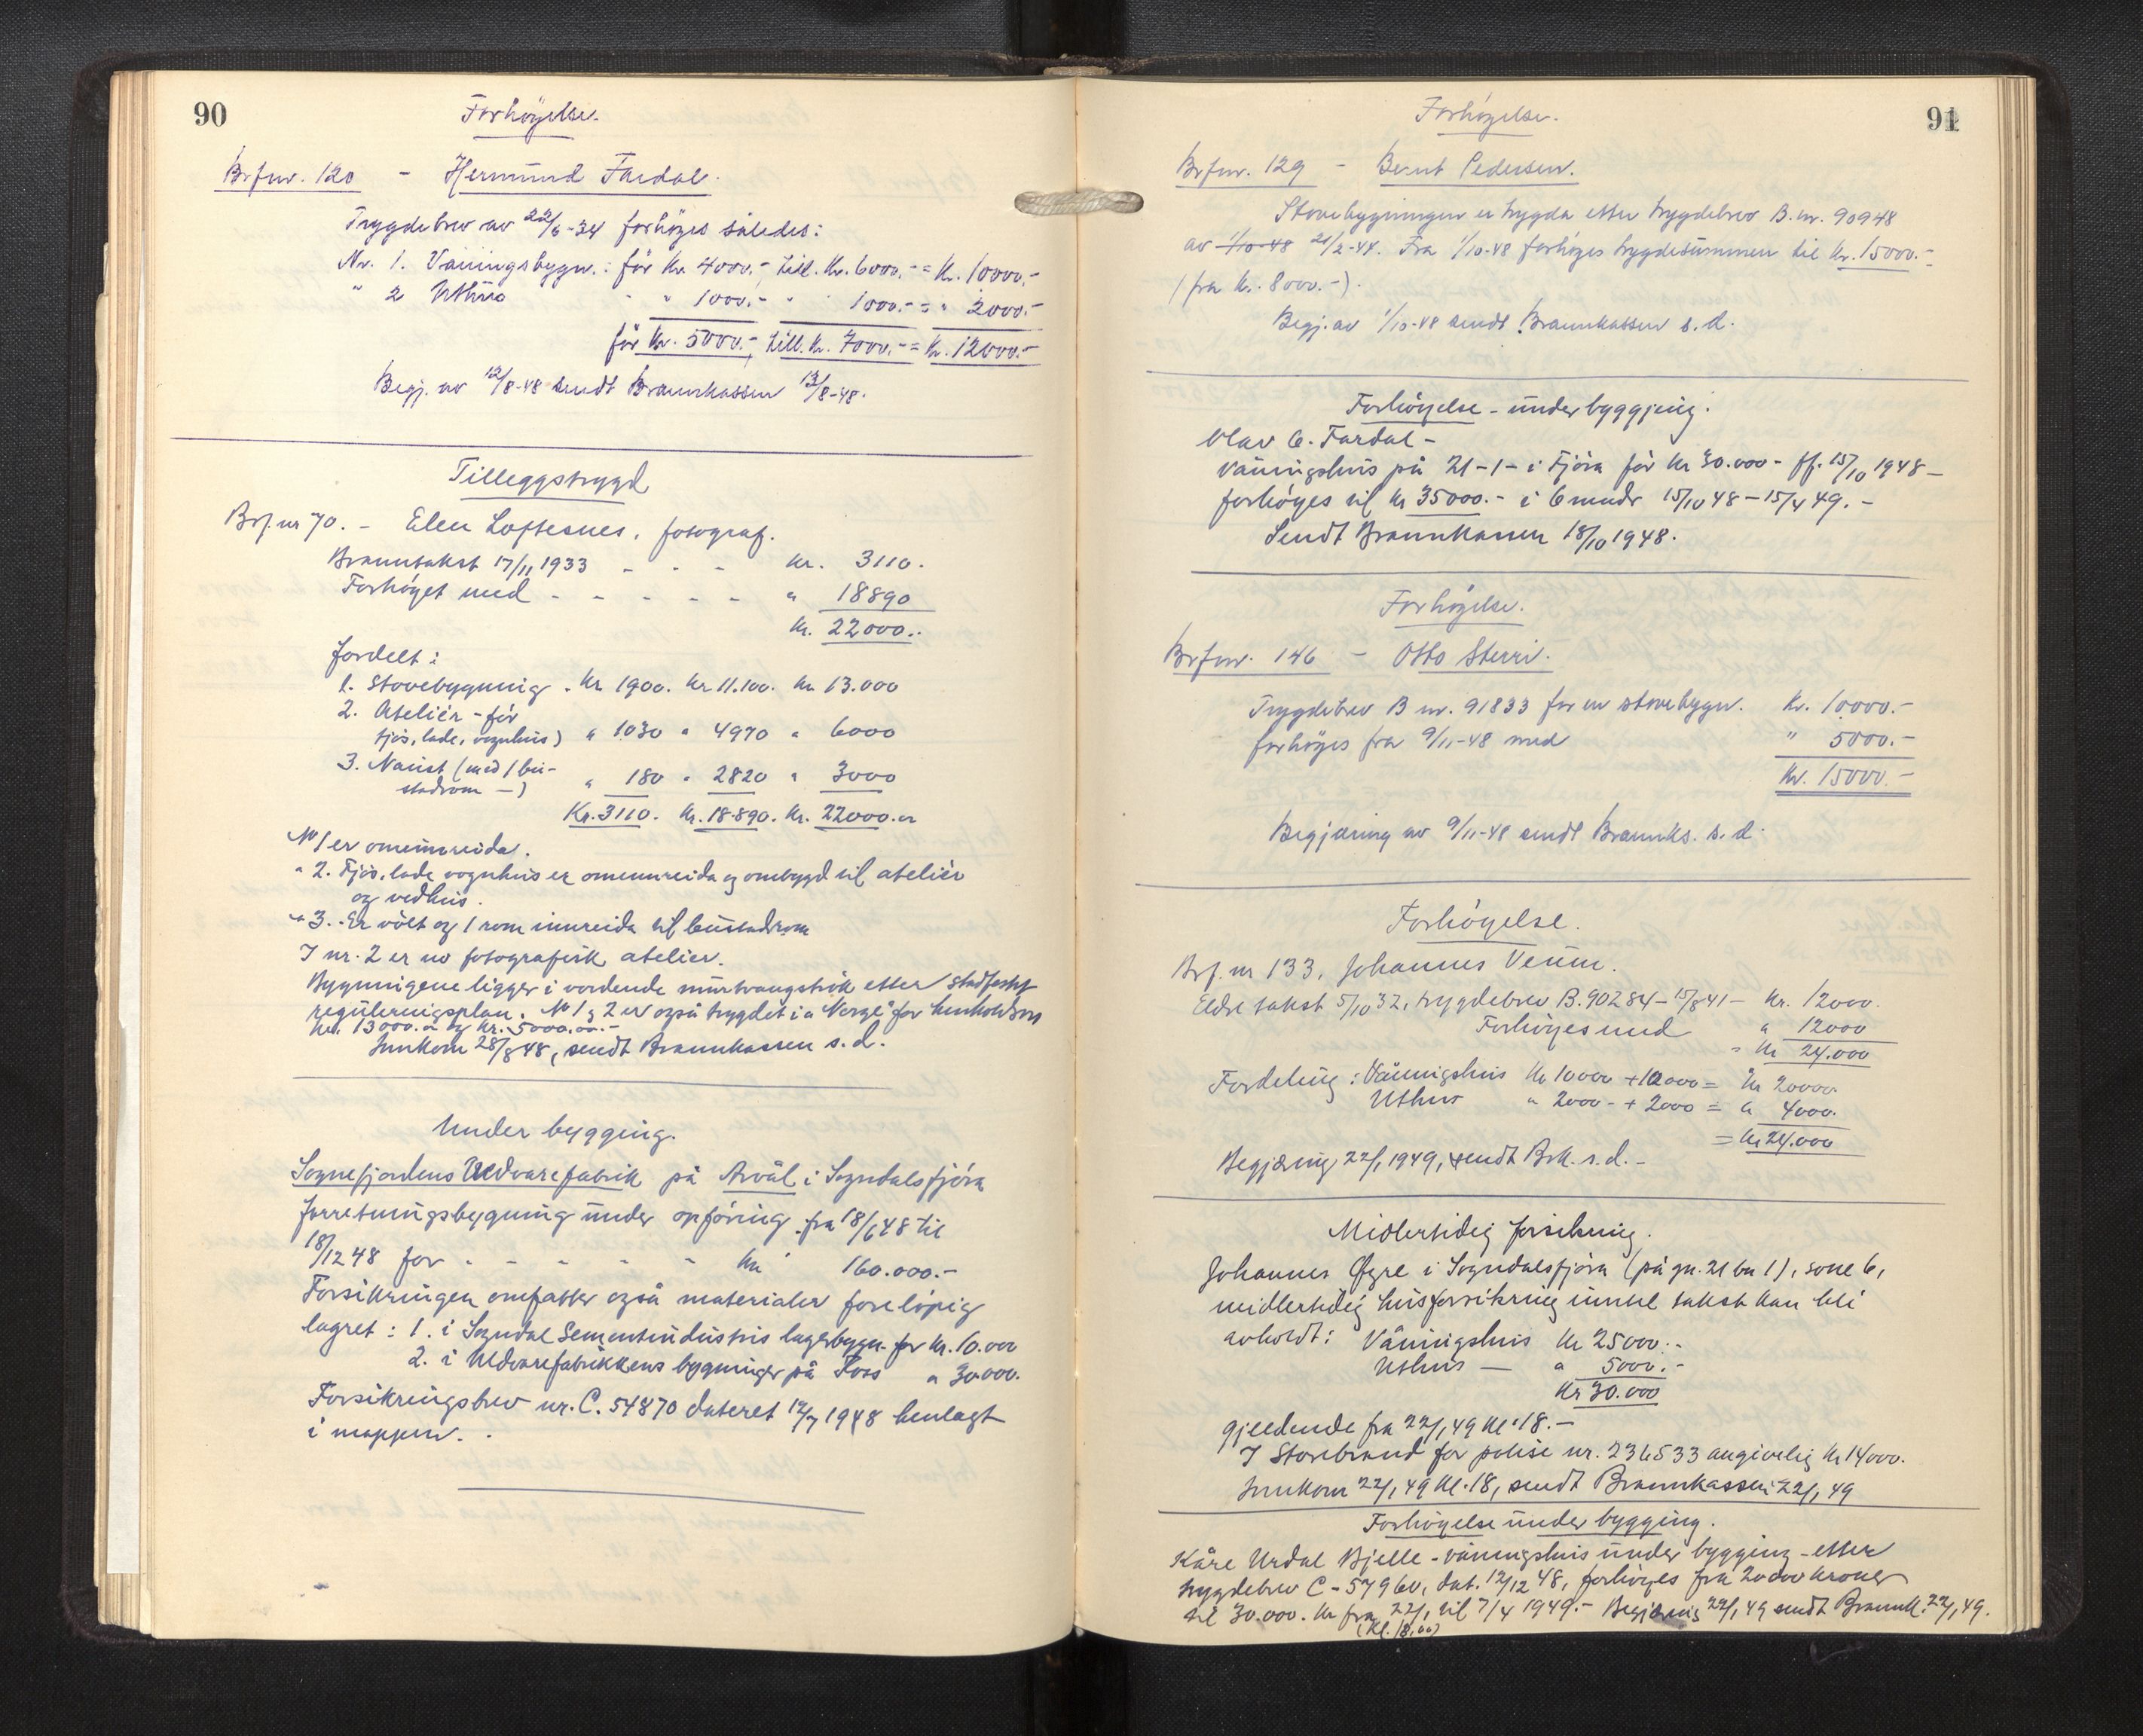 90
Forhöyelse.
Brfnr. 120 - Hermund Fardal.
Trygdebrev av 22/6-34 forhöges således:
Nr. 1. Våningsbygn.: för Kr. 4000,- till. Kr. 6000,- = Kr. 10000,-
" 2 Uthus " " 1000.- " 1000.- = " 2000.-
för Kr. 5000.-, till. Kr. 7000.- = Kr. 12000.-
Begj. av 12/8-48 sendt Brannkassen 13/8-48.
Tilleggstrygd
Brf.nr 70. - Elen Loftesnes, fotograf.
Branntakst 17/11 1933 - - - kr. 3110.
Forhöyet med - - - - - " 18890
Kr. 22000..
fordelt:
1. Stovebygning . Kr 1900. Kr 11.100. Kr 13.000
2. Ateliér - för
fjös, lade, vognhus) " 1030 " 4970 " 6000
3. Naust (med 1 bu-
stadrom -) " 180 " 2820 " 3000
Kr. 3110. Kr. 18.890. Kr. 22000.
Nr 1 er ominnreida.
" 2. Fjös, lade vognhus er ominnreida og ombygd til ateliér
og vedhus.
" 3. - Er vølt og 1 rom innreida til bustadrom
I nr. 2 er no fotografisk atelier.
Bygningene ligger i vordende murtvangströk etter stadfestet
reguleringsplan. Nr 1 og 2 er også trygdet i "Norge" for henholdsvis
kr. 13000.- og kr. 5000.00.-
Innkom 28/8 48, sendt Brannkassen s.d.
Under bygging.
Sognefjordens Uldvarefabrik på Årväl i Sogndalsfjöra
forretningsbygning under opföring fra 18/6 48 til
18/12 48 for - - - - - kr 160.000.-
Forsikringen omfatter også materialer foreløpig
lagret: 1. i Sogndal Sementindustris lagerbygn. for Kr. 10.000
2. i Uldvarefabrikkens bygninger på Foss " 30000.
Forsikringsbrev nr. C. 54870 dateret 12/7 1948 henlagt
i mappen.
91
Forhöyelse.
Brfnr. 129 - Bernt Pedersen.
Stovebygningen er trygda etter trygdebrev B. nr. 90948
av 1/10-48 21/2-44. Fra 1/10-48 forhöges trygdesummen til Kr. 15000.-
(fra Kr. 8000.-).
Begj. av 1/10-48 sendt Brannkassen s.d.
Forhöyelse - under byggjing.
Olav O. Fardal -
våningshus på 21-1- i Fjöra för Kr 30.000- ff. 15/10 1948 -
forhöyes til Kr 35000.- i 6 mndr 15/10 48 - 15/4 49. -
Sendt Brannkassen 18/10 1948.
Forhöyelse.
Brfnr. 146 - Otto Sterri.
Trygdebrev B nr. 91833 for en stovebygn. Kr. 10000.-
forhöyes fra 9/11-48 med " 5000.-
Kr. 15000.-
Begjæring av 9/11-48 sendt Brannks. s.d.
Forhöyelse.
Brf.nr 133. Johannes Venum.
Eldre takst 5/10 32, trygdebrev B. 90284 - 15/8 41 - Kr. 12000.
Forhöyes med " 12000
= Kr 24.000
Fordeling: Våningshus Kr 10000 + 10000 = Kr 20000.
Uthus " 2000 - + 2000 = " 4000.
= Kr 24.000
Begjæring 22/1 1949, sendt Brk. s.d. -
Midlertidig forsikring.
Johannes Øgre i Sogndalsfjöra (på gn. 21 bn 1), sone 6,
midlertidig husforsikring inntil takst kan bli
avholdt: Våningshus Kr 25000.-
Uthus - " 5000.-
Kr 30.000
gjeldende fra 22/1 49 kl. 18.-
I Storebrand for polise nr. 236533 angivelig Kr 14000.
Innkom 22/1 49 Kl. 18, sendt Brannkassen 22/1 49
Forhöyelse under bygging.
Kåre Urdal Bjelle - våningshus under bygging - etter
trygdebrev C - 57960, dat. 12/12 48, forhöyes fra 20000 kroner
til 30.000. Kr fra 22/1 til 7/4 1949.- Begjæring 22/1 49 sendt Brannk. 22/1 49.
(Kl. 18,00)